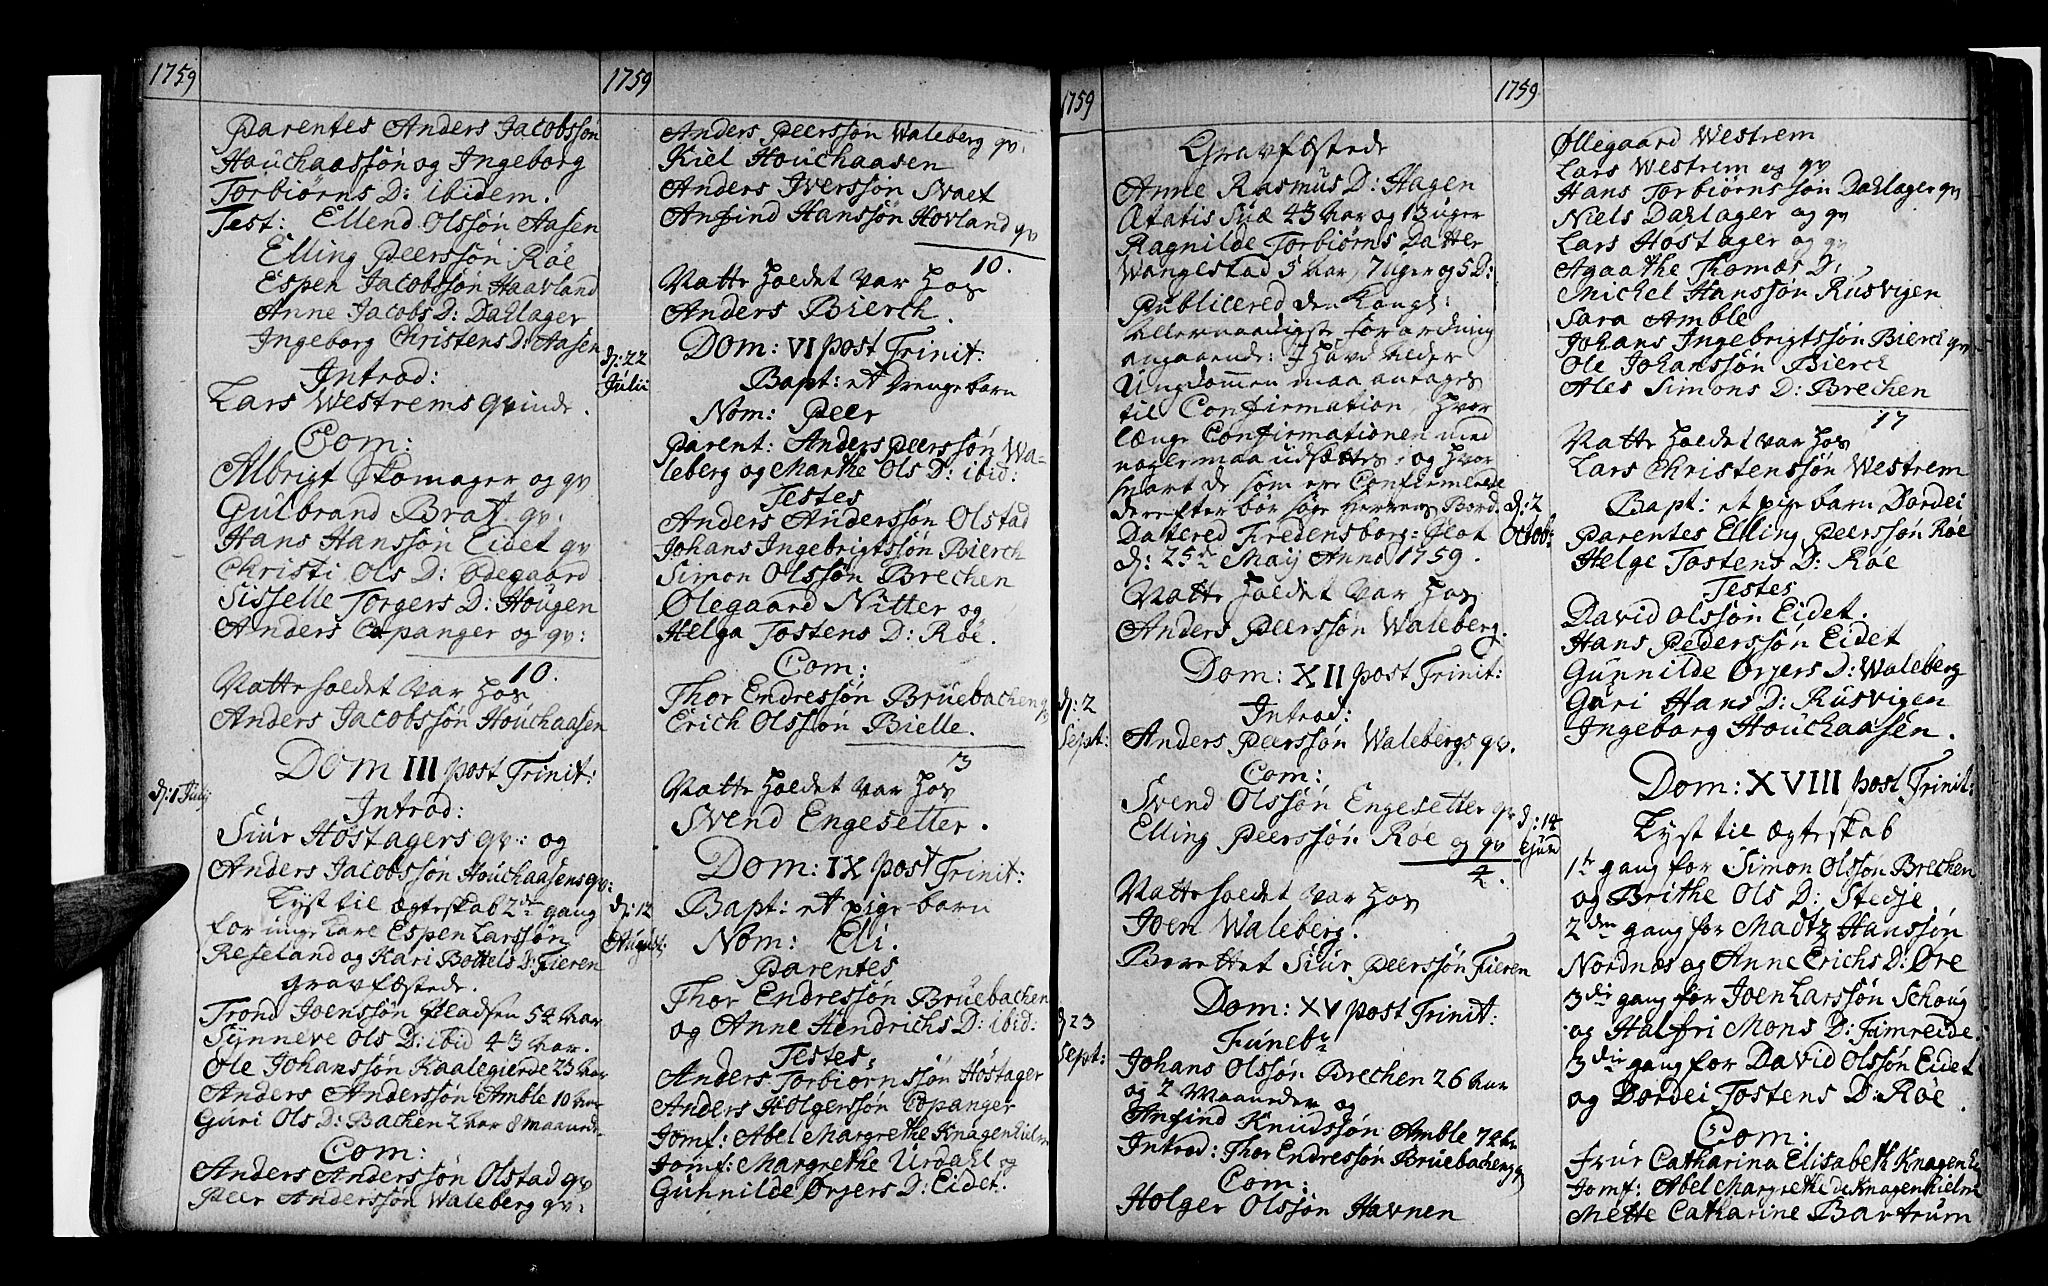 1759
Parentes Anders Jacobssøn
Houchaassøn og Ingeborg
Torbiørns D: ibidem.
Test: Ellend Olssøn Aasen
Elling Peerssøn Røe
Espen Jacobssøn Haavland
Anne Jacobs D: Dahlager
Ingeborg Christens D: Aasen
Introd:
Lars Westrems qvinde.
Com:
Albrigt Skomager og qv
Gulbrand Brat qv:
Hans Hanssøn Eidet qv
Christi Ols D: Ødegaard
Sisselle Torgers D: Hougen
Anders Copanger og qv:
10.
Natte holdet var hos
Anders Jacobssøn Houchaasen
d: 1 Julij
Dom III post Trinit:
Introd:
Siur Hostagers qv: og
Anders Jacobssøn Houchaasens qv:
Lyst til Ægteskab 2den gang
for unge Karl Espen Larssøn
Reseland og Kari Bottels D: Fieren
Gravfæstede.
Trond Joenssøn Pladsen 54 Aar
Synneve Ols D: ibid 43 Aar.
Ole Johanssøn Kaalegierde 23 Aar
Anders Anderssøn Amble 10 Aar
Guri Ols D: Bachen 2 Aar 8 Maaned.
Com:
Anders Anderssøn Olstad qv
Peer Anderssøn Waleberg qv:
1759
Anders Peerssøn Waleberg qv:
Kiel Houchaasen
Anders Iverssøn Svaet
Anfind Hanssøn Hovland qv
10.
Natte holdet var hos
Anders Bierch.
d: 22
Julii
Dom: VI post Trinit:
Bapt: et Drenge barn
Nom: Peer
Parent: Anders Peerssøn Wa-
leberg og Marthe Ols D: ibid:
Testes
Anders Anderssøn Olstad
Johans Ingebrigtssøn Bierch
Simon Olssøn Brechen
Ølegaard Nitter og
Helga Tostens D: Røe.
Com:
Thor Endressøn Bruebachen qv
Erich Olssøn Bielle.
3
Natte holdet var hos
Svend Engesetter.
Dom: IX post Trinit:
d: 12
August:
Bapt: et pige barn
Nom: Eli.
Parentes
Thor Endressøn Bruebachen
og Anne Hendrichs D: ibid:
Testes:
Anders Torbiørnssøn Hostager
Anders Holgerssøn Copanger
Jomf: Abel Margrethe Knagenhielm
Jomf: Margrethe Urdahl og
Gunnilde Ørjers D: Eidet:
1759
Gravfæstede
Anne Rasmus D: Hagen
Ætatis Suæ 43 Aar og 13 uger
Ragnilde Torbiørns Datter
Wangestad 5 Aar, 7 Uger og 5 D:
Publicered den Kongl:
Allernaadigste forordning
angaaende: I hvad Alder
Ungdommen maa antages
til Confirmation, hvor
længe Confirmationen med
nogen maa udsættes: og hvor
snart de som ere Confirmerede
derefter bør søge Herrens Bord.
Datered Fredensborg Slot
d: 25de Maij Anno 1759.
Natte holdet var hos
Anders Peerssøn Waleberg.
Dom: XII post Trinit:
d: 2
Sept:
Introd:
Anders Peerssøn Walebergs qv.
Com:
Svend Olssøn Engesetter qv
Elling Peerssøn Roe og qv
4.
Natte holdet var hos
Joen Waleberg.
Berettet Siur Peerssøn Fieren
Dom: XV post Trinit:
d 23
Sept:
Funebr
Johans Olssøn Brechen 26 Aar
og 2 Maaneder og
Anfind Knudssøn Amble 72 Aar
Introd: Thor Endressøn Bruebachens qv
Com:
Holger Olssøn Havnen
1759
Øllegaard Westrem
Lars Westrem og qv
Hans Torbiørnssøn Dahlager qv
Niels Dahlager og qv
Lars Hostager og qv
Agaathe Thomæs D:
Michel Hanssøn Rusvigen
Sara Amble
Johans Ingebrigtssøn Bierch qv
Ole Johanssøn Bierch
Ales Simons D: Brechen
17
Natte holdet var hos
Lars Christenssøn Westrem
d: 2
Octob:
Bapt: et pige barn Dordei
Parentes Elling Peerssøn Røe
Helge Tostens D: Røe
Testes
David Olssøn Eidet.
Hans Pederssøn Eidet
Gunnilde Ørjers D: Waleberg
Guri Hans D: Rusvigen
Ingeborg Houchaasen.
Dom: XVIII post Trinit:
d: 14
Ejusd
Lyst til Ægteskab
1te gang for Simon Olssøn Brechen
og Brithe Ols D: Stedje.
2den gang for Madtz Hanssøn
Nordnæs og Anne Erichs D: Øre
3die gang for Joen Larssøn Schoug
og Halfri Mons D: Fimreide.
3die gang for David Olssøn Eidet
og Dordei Tostens D: Røe.
Com:
Frue Catharina Elisabeth Knagenh
Jomf: Abel Margrethe de Knagenhielm
Mette Catharine Bartrum